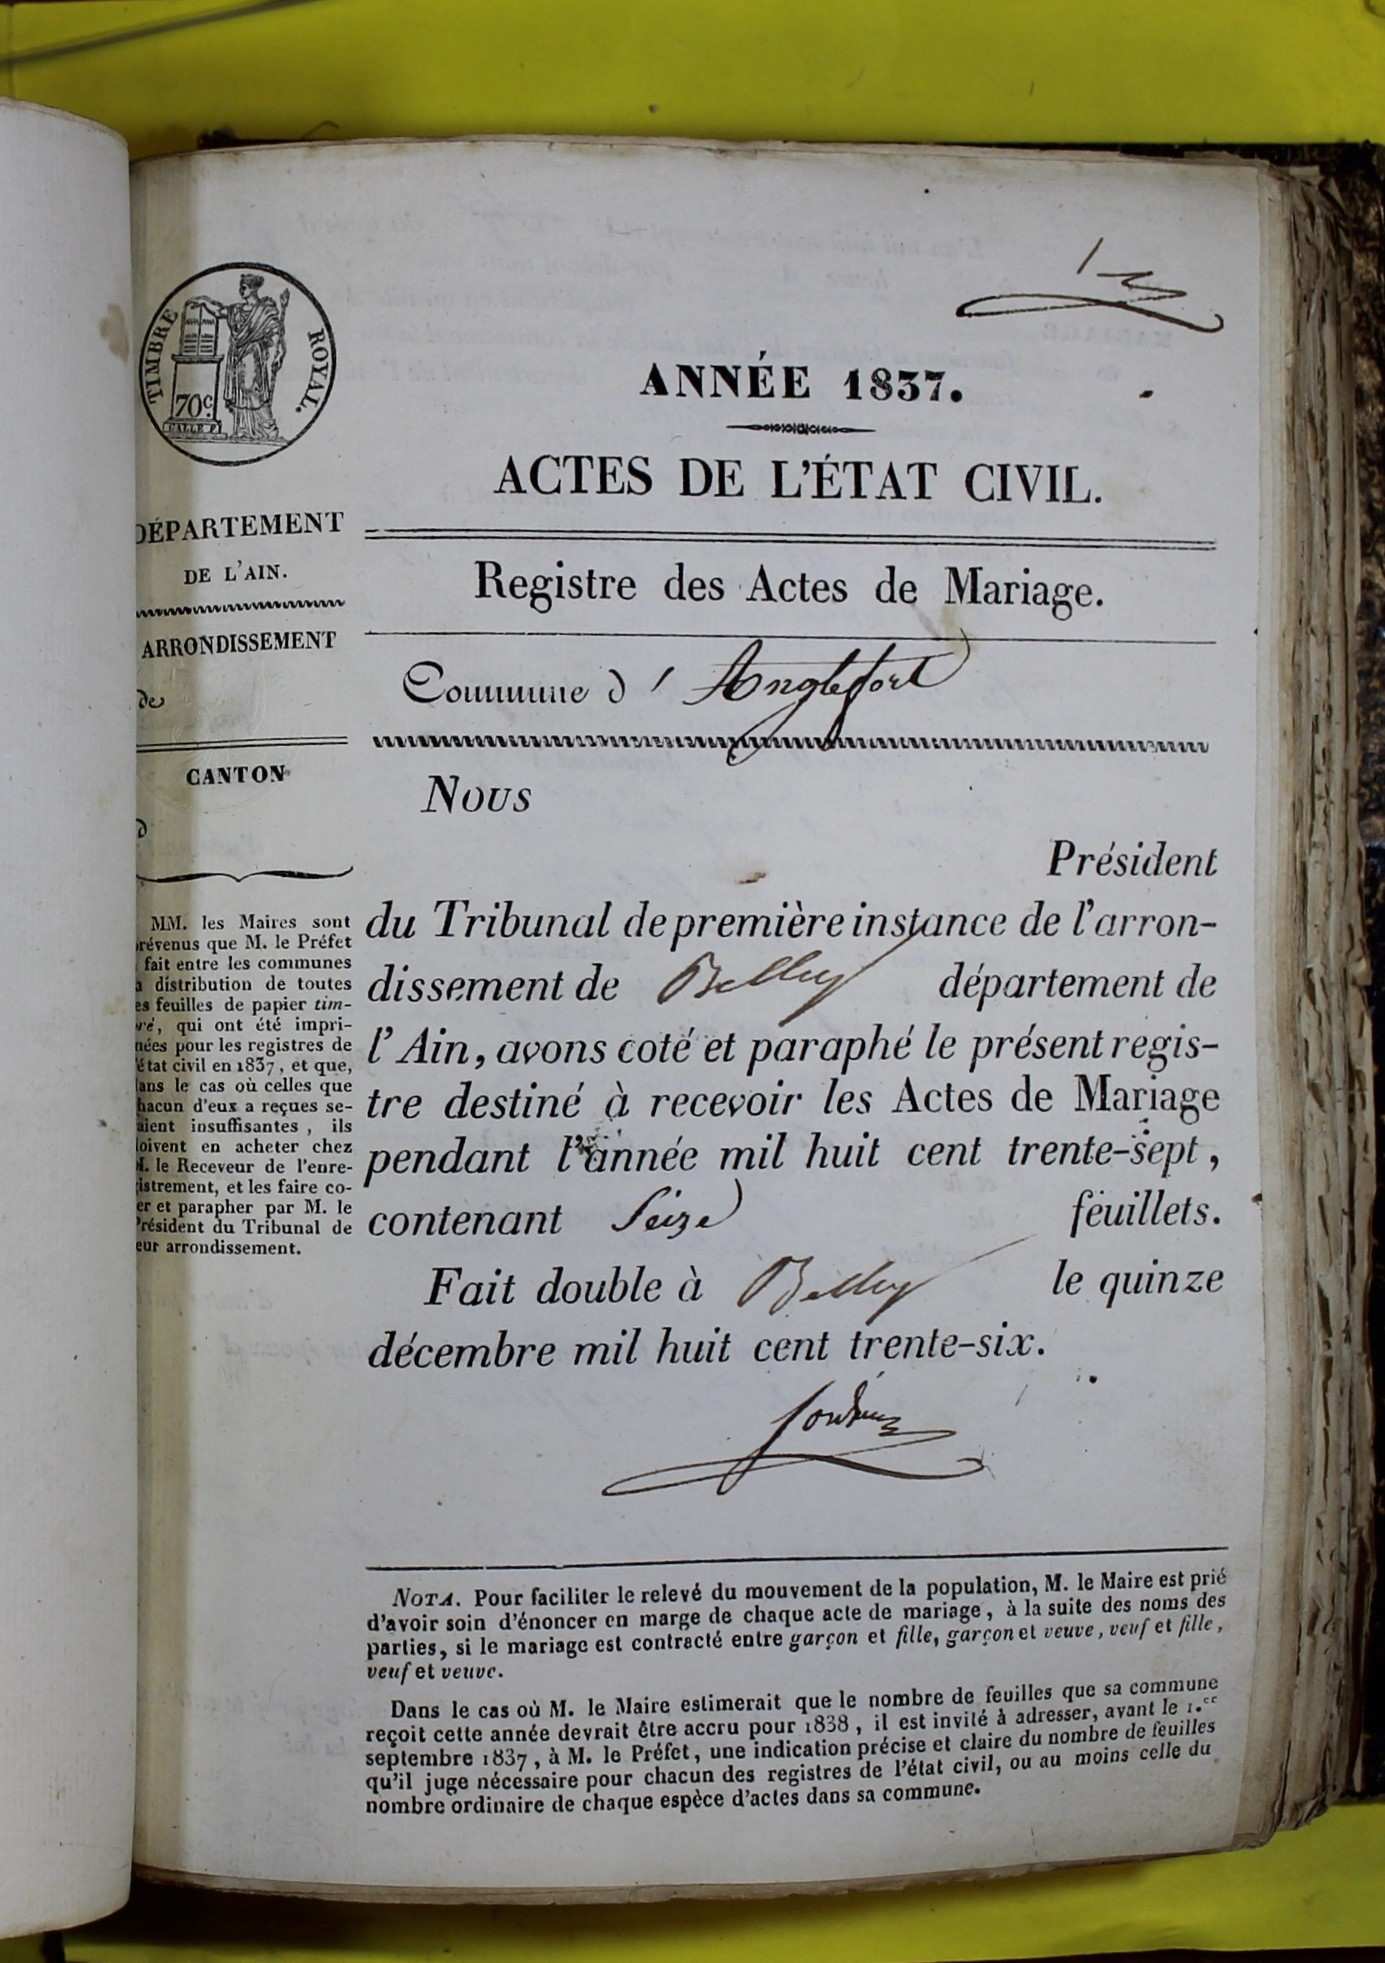 1
TIMBRE ROYAL.
70c.
ANNÉE 1837.
ACTES DE L'ÉTAT CIVIL.
DÉPARTEMENT
DE L'AIN.
ARRONDISSEMENT
de
CANTON
d
MM. les Maires sont
prévenus que M. le Préfet
fait entre les communes
a distribution de toutes
es feuilles de papier tim-
ré, qui ont été impri-
mées pour les registres de
état civil en 1837, et que,
ans le cas où celles que
hacun d'eux a reçues se-
aient insuffisantes, ils
oivent en acheter chez
M. le Receveur de l'enre-
istrement, et les faire co-
er et parapher par M. le
Président du Tribunal de
eur arrondissement.
Registre des Actes de Mariage.
Commune d' Anglefort
Nous
Président
du Tribunal de première instance de l'arron-
dissement de Belley département de
l'Ain, avons coté et paraphé le présent regis-
tre destiné à recevoir les Actes de Mariage
pendant l'année mil huit cent trente-sept,
contenant Seize feuillets.
Fait double à Belley le quinze
décembre mil huit cent trente-six.
NOTA. Pour faciliter le relevé du mouvement de la population, M. le Maire est prié
d'avoir soin d'énoncer en marge de chaque acte de mariage, à la suite des noms des
parties, si le mariage est contracté entre garçon et fille, garçon et veuve, veuf et fille,
veuf et veuve.
Dans le cas où M. le Maire estimerait que le nombre de feuilles que sa commune
reçoit cette année devrait être accru pour 1838, il est invité à adresser, avant le 1.er
septembre 1837, à M. le Préfet, une indication précise et claire du nombre de feuilles
qu'il juge nécessaire pour chacun des registres de l'état civil, ou au moins celle du
nombre ordinaire de chaque espèce d'actes dans sa commune.